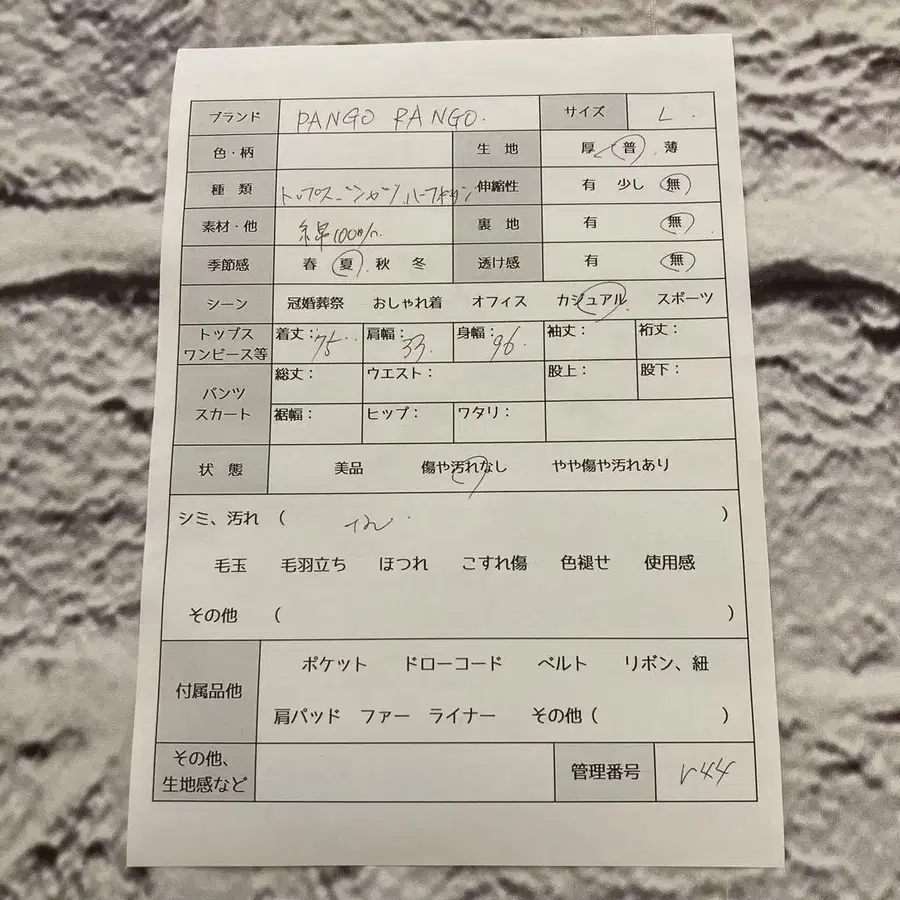 ブランド PANGO PANGO. サイズ L.
色・柄 生 地 厚 普 薄
種 類 トップス シャツ ハーフボタン 伸縮性 有 少し 無
素材・他 綿100% 裏 地 有 無
季節感 春 夏 秋 冬 透け感 有 無
シーン 冠婚葬祭 おしゃれ着 オフィス カジュアル スポーツ
トップス ワンピース等 着丈:75. 肩幅:33. 身幅:96. 袖丈: 裄丈:
パンツ スカート 総丈: ウエスト: 股上: 股下:
裾幅: ヒップ: ワタリ:
状 態 美品 傷や汚れなし やや傷や汚れあり
シミ、汚れ ( )
毛玉 毛羽立ち ほつれ こすれ傷 色褪せ 使用感
その他 ( )
付属品他 ポケット ドローコード ベルト リボン、紐
肩パッド ファー ライナー その他 ( )
その他、
生地感など 管理番号 r44